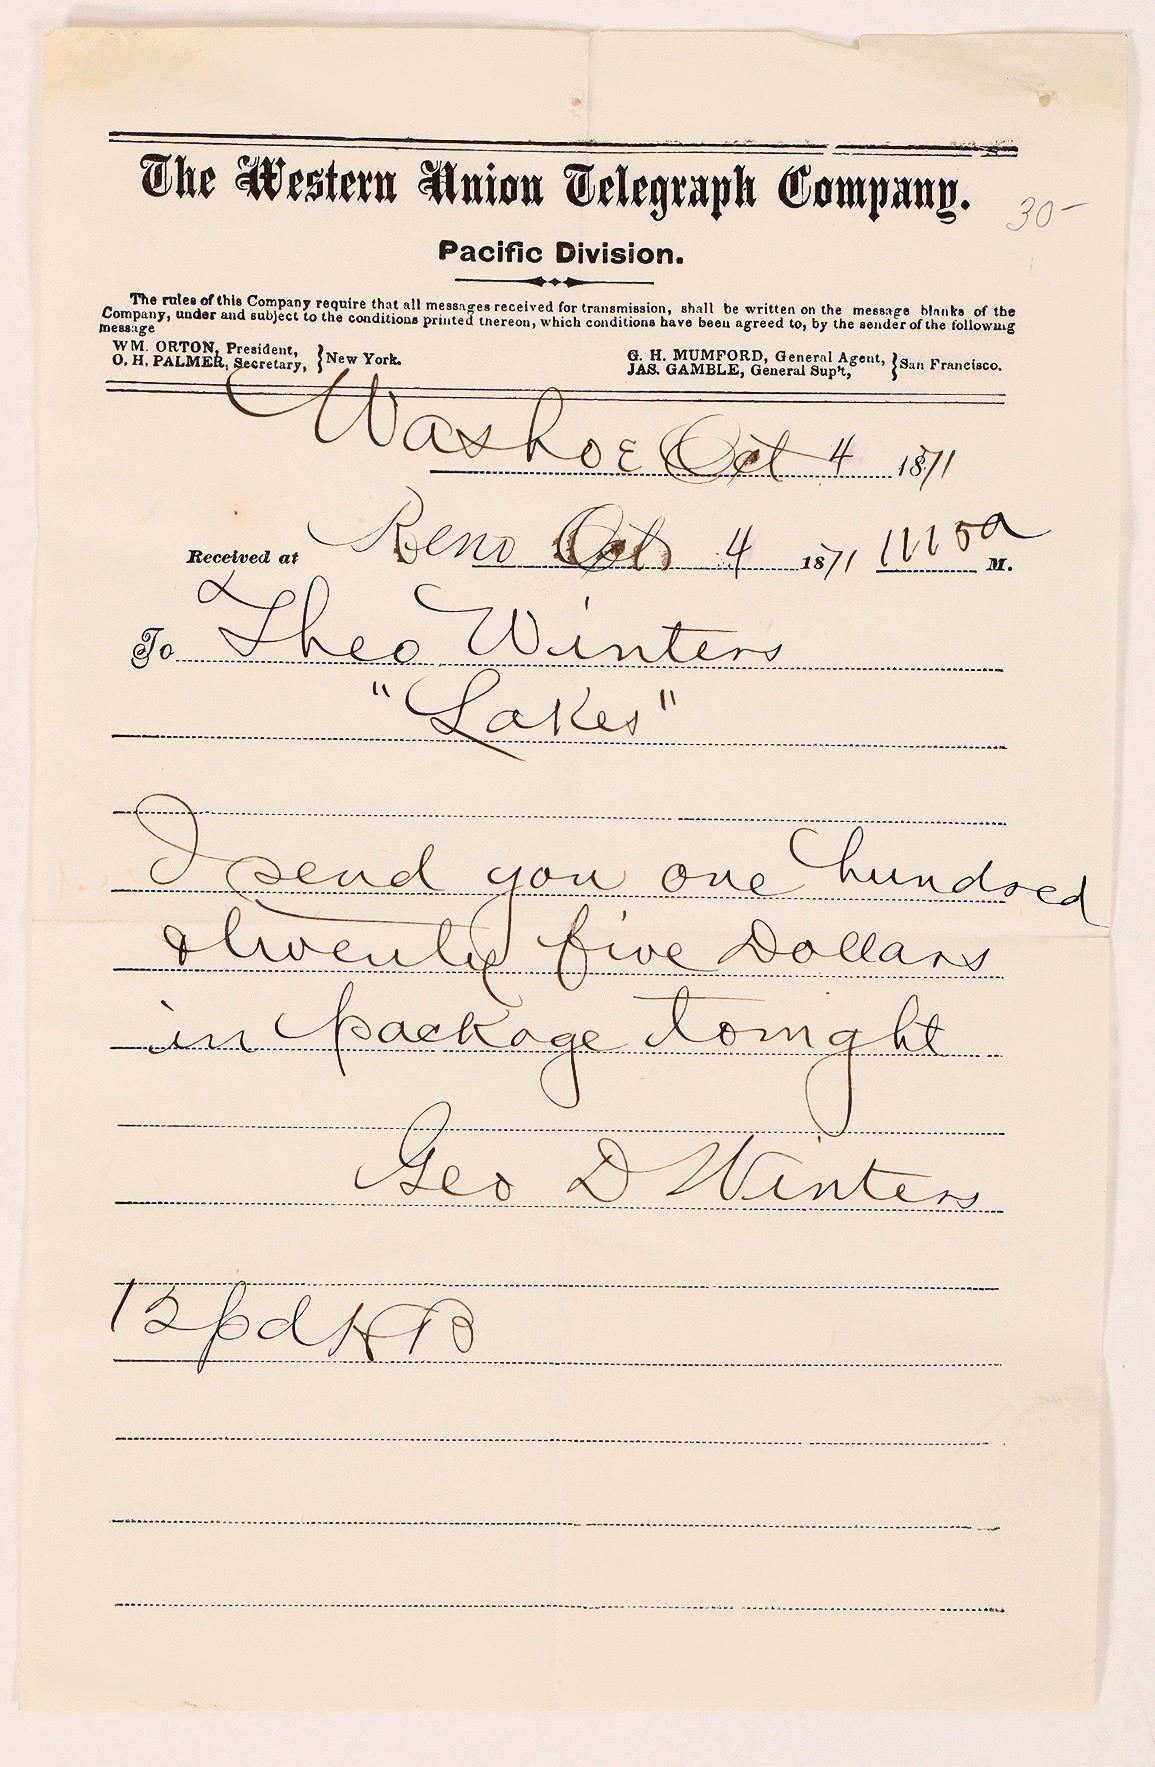 The Western Union Telegraph Company.
30-
Pacific Division.
The rules of this Company require that all messages received for transmission, shall be written on the message blanks of the
Company, under and subject to the conditions printed thereon, which conditions have been agreed to, by the sender of the following
message
WM. ORTON, President,
O. H. PALMER, Secretary, } New York.
G. H. MUMFORD, General Agent,
JAS. GAMBLE, General Sup't, } San Francisco.
Washoe Oct 4 1871
Received at Reno Oct 4 1871 1110a M.
To Theo Winters
"Lakes"
I send you one hundred
& twenty five Dollars
in package tonight
Geo D Winters
12 pd